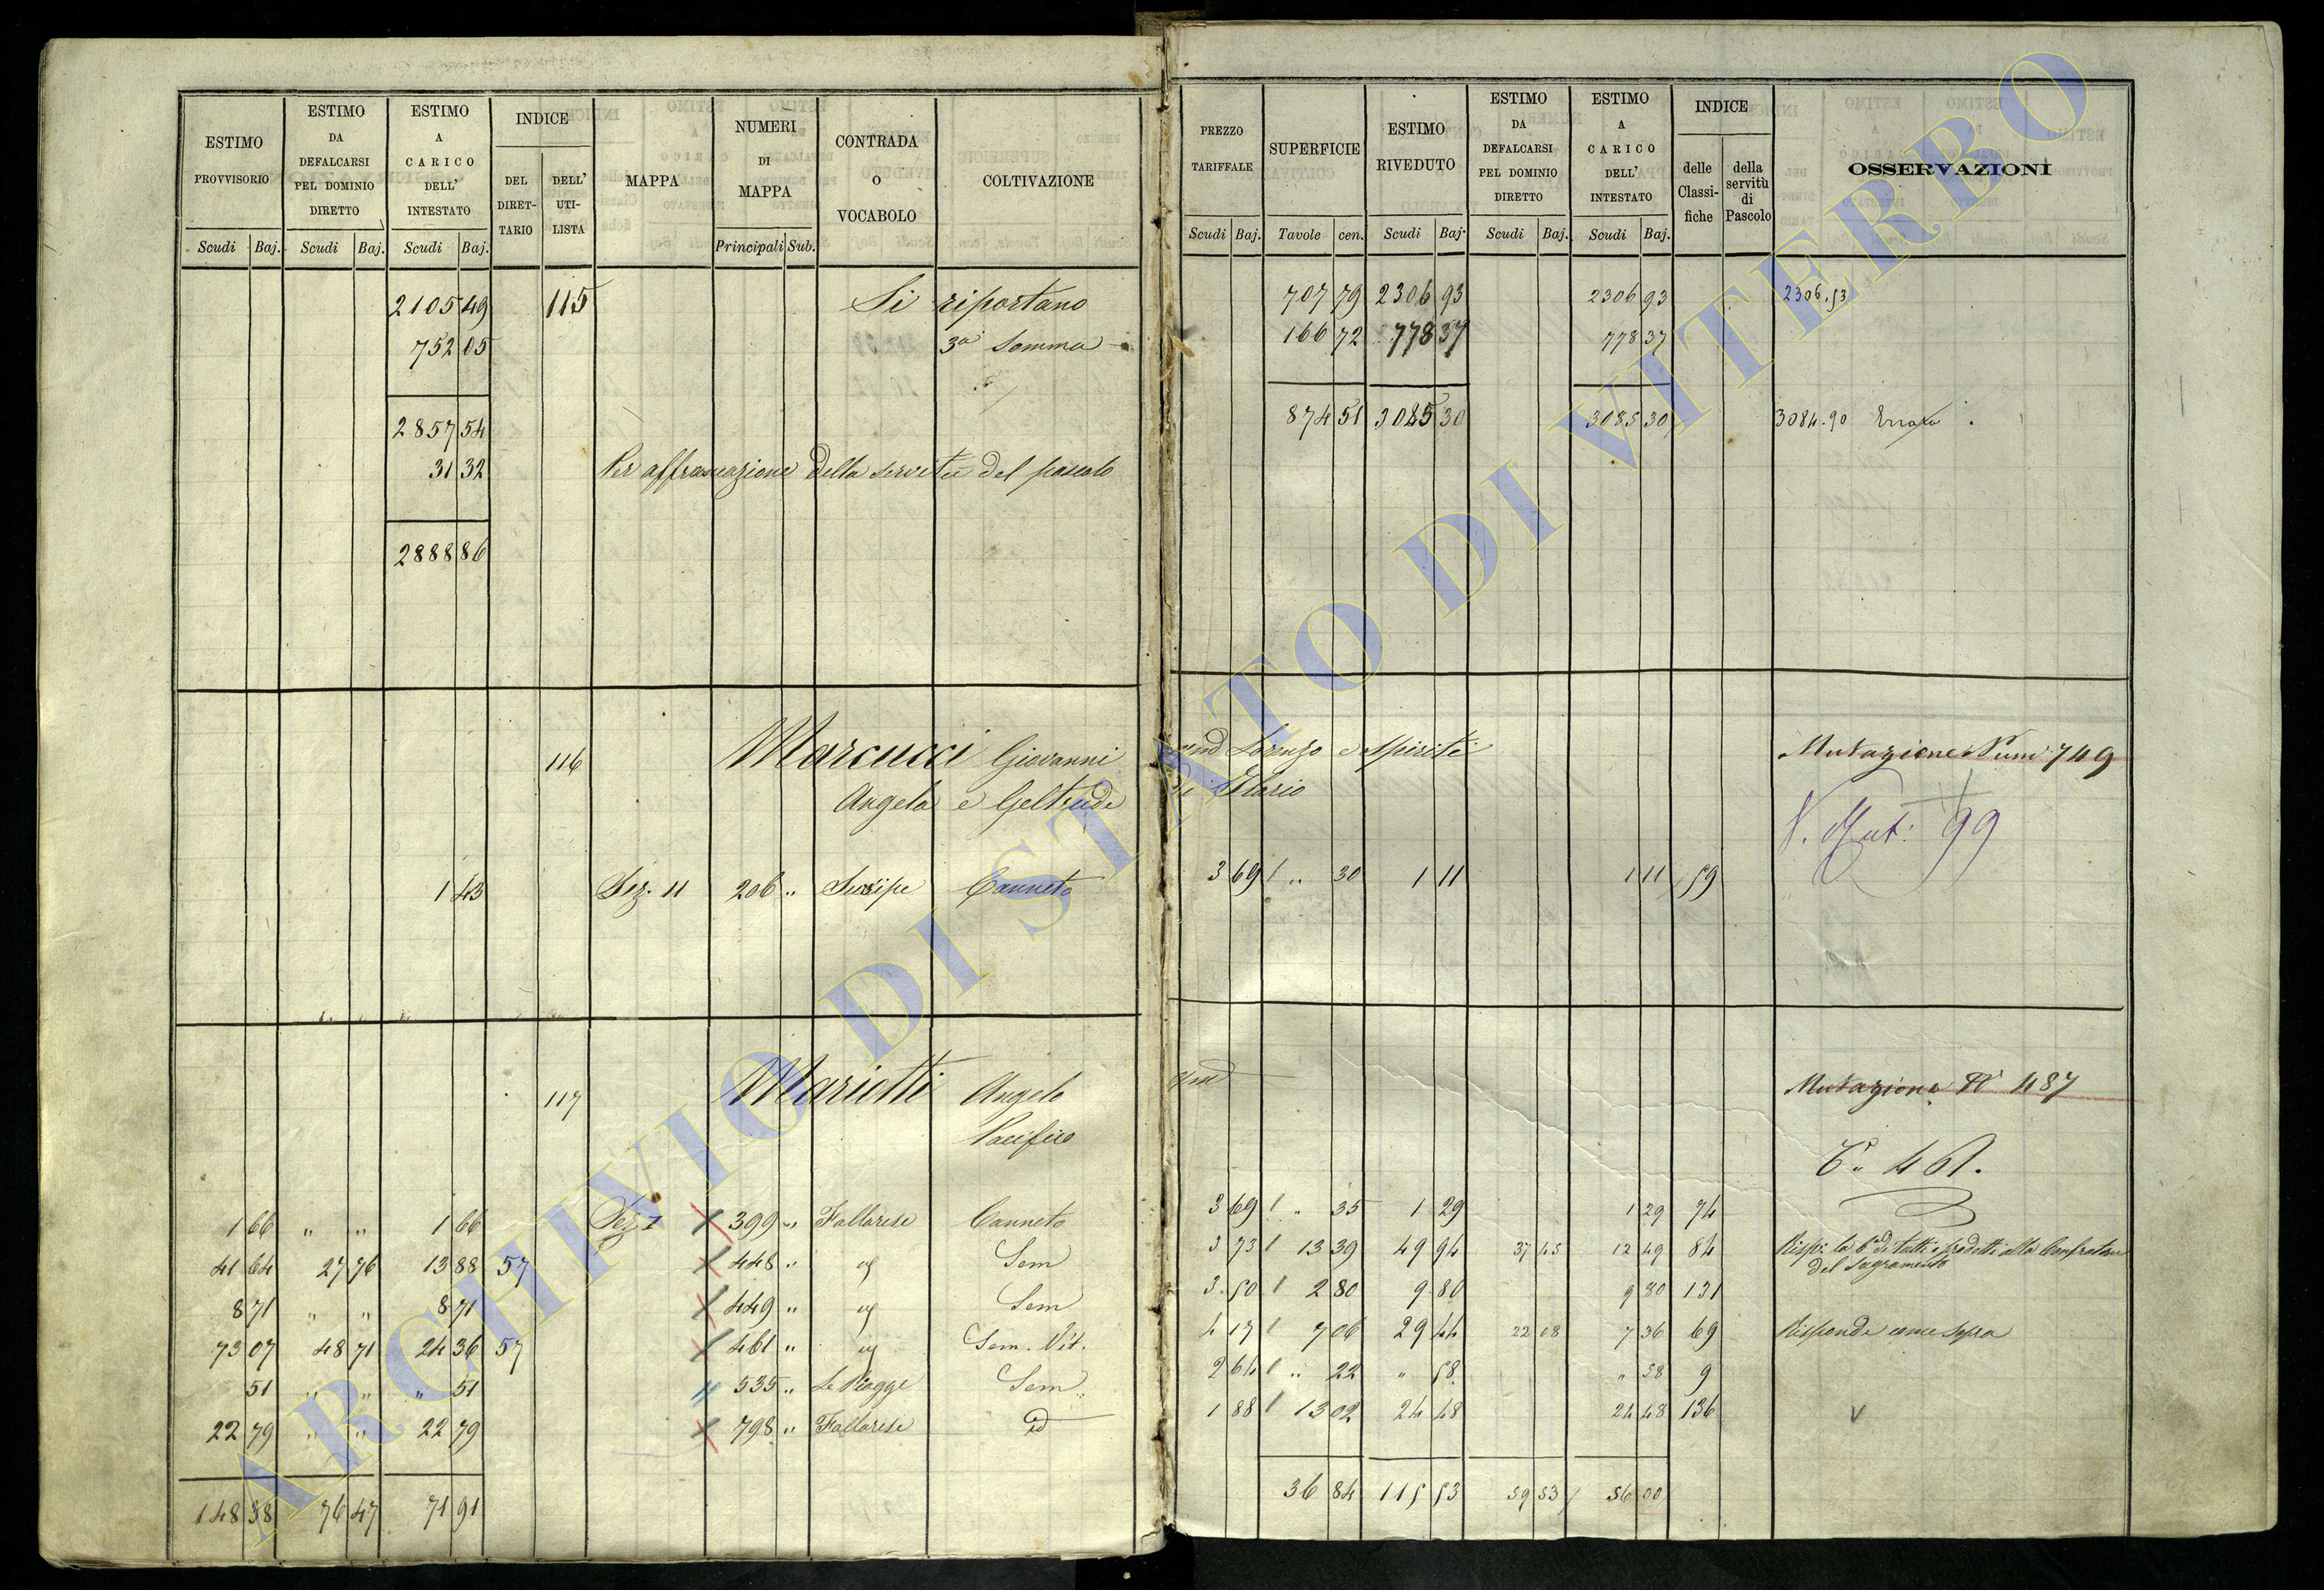 ESTIMO PROVVISORIO ESTIMO DA DEFALCARSI PEL DOMINIO DIRETTO ESTIMO A CARICO DELL' INTESTATO INDICE DEL DIRET-TARIO DELL' UTI-LISTA MAPPA NUMERI DI MAPPA CONTRADA O VOCABOLO COLTIVAZIONE
Scudi Baj. Scudi Baj. Scudi Baj. Principali Sub.
2105 49 115 Si riportano
752 05 3a Somma
2857 54
31 32 Per affrancazione della servitù del pascolo
2888 86
116 Marcucci Giovanni
Angela e Geltrude
1 43 Sez. 11 206 " Canneto
117 Mariotti Angelo
Pacifico
1 66 " " 1 66 Sez 1 399 " Fallarese Canneto
41 64 27 76 13 88 57 448 " Sem
8 71 " " 8 71 449 " Sem
73 07 48 71 24 36 57 461 " Sem. Vit.
51 " " " 51 535 " Le Piagge Sem
22 79 " " 22 79 798 " Fallarese id
148 38 76 47 71 91
PREZZO TARIFFALE SUPERFICIE ESTIMO RIVEDUTO ESTIMO DA DEFALCARSI PEL DOMINIO DIRETTO ESTIMO A CARICO DELL' INTESTATO INDICE delle Classi-fiche della servitù di Pascolo OSSERVAZIONI
Scudi Baj. Tavole cen. Scudi Baj. Scudi Baj. Scudi Baj.
707 79 2306 93 2306 93 2306.93
166 72 778 37 778 37
874 51 3085 30 3085 30 3084.90 Errata
qmd Lorenzo e Spiriti Mutazione Num 749
di Ilario
N. Mut. 99
3 69 " 30 1 11 1 11 59
qmd Mutazione N 487
461.
3 69 " 35 1 29 1 29 74
3 73 13 39 49 94 37 45 12 49 84 Risp. la di tutti i prodotti alla Confraternita
del Sagramento
3 50 2 80 9 80 9 80 131
4 17 7 06 29 44 22 08 7 36 69 Risponde come sopra
2 64 " 22 " 58 " 58 9
1 88 13 02 24 48 24 48 136
36 84 115 53 59 53 56 00
ARCHIVIO DI STATO DI VITERBO